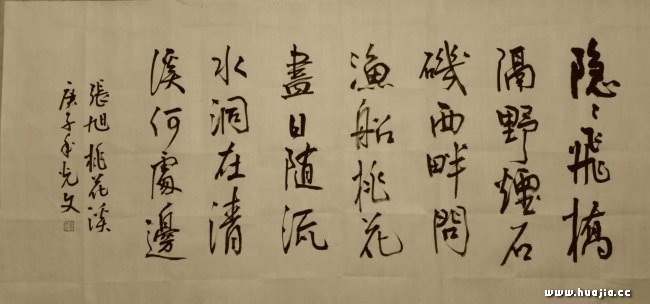 隐々飛橋
隔野煙石
磯西畔問
漁船桃花
盡日随流
水洞在清
溪何處邊
張旭桃花溪
庚子光文
www.huajia.cc